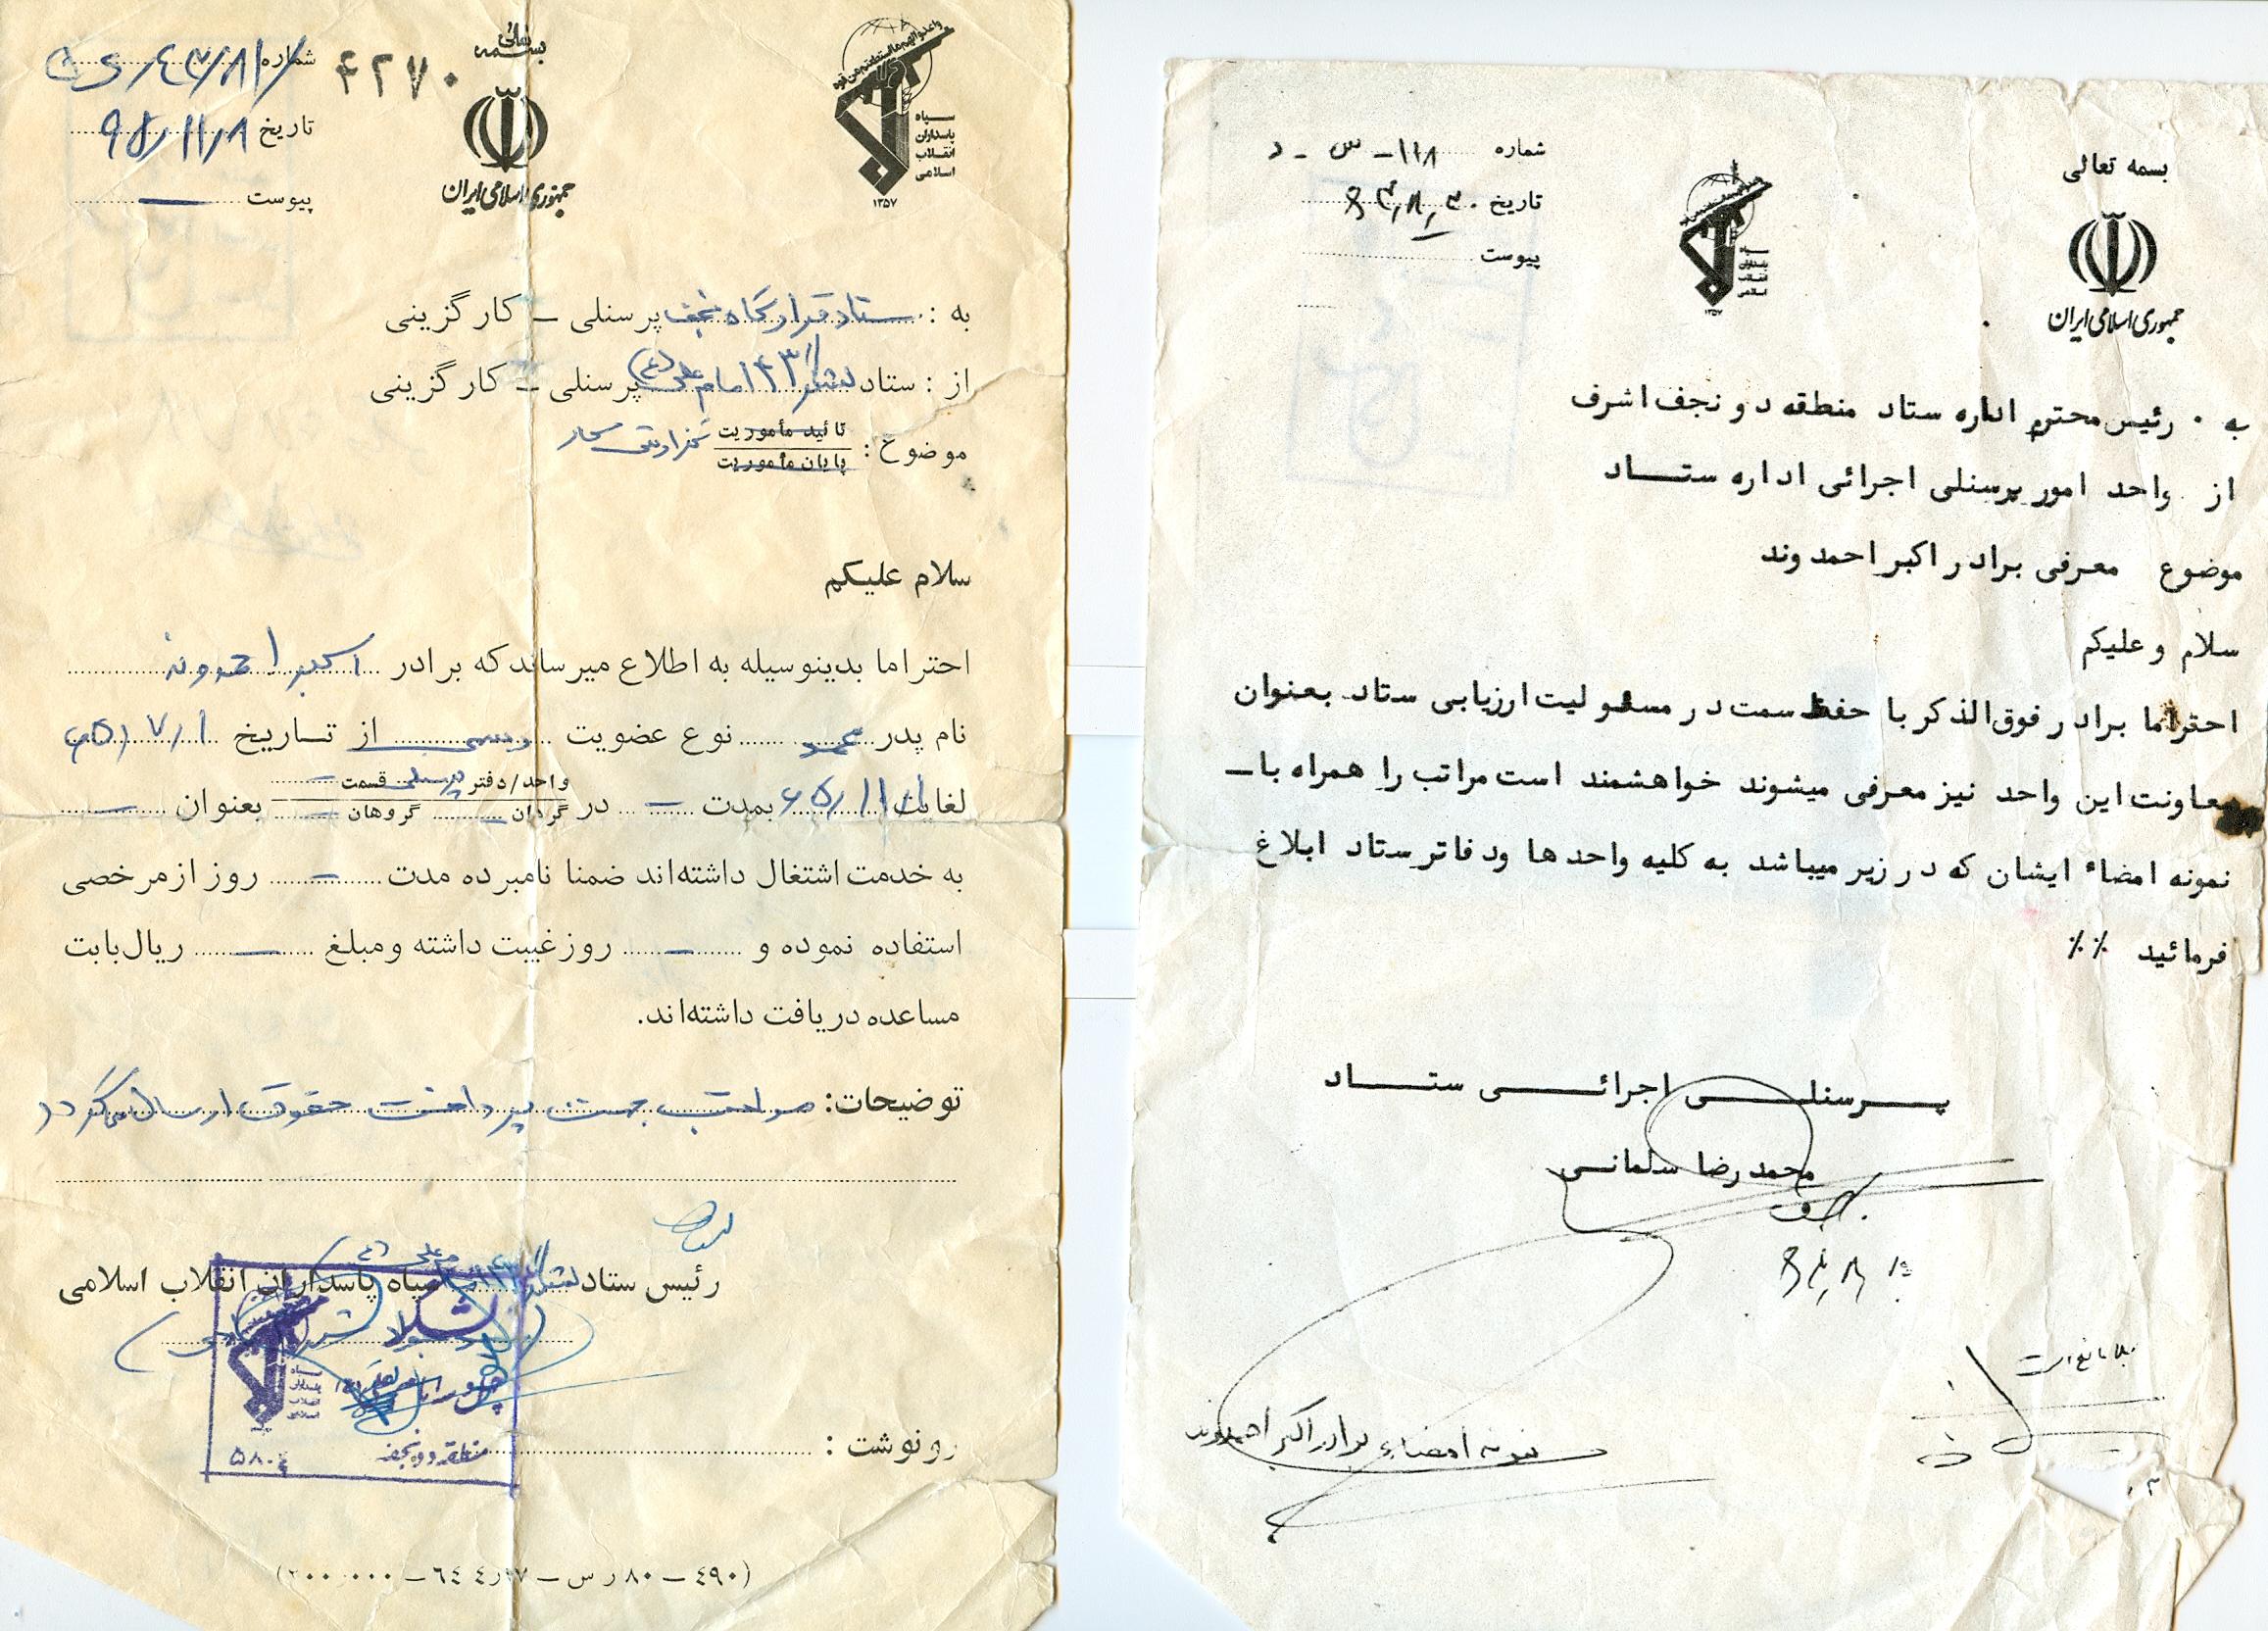 بسمه تعالی
جمهوری اسلامی ایران
سپاه
پاسداران
انقلاب
اسلامی
۱۳۵۷
شماره ۴۲۷۰
تاریخ ۶۵/۱۱/۸
پیوست —
به : ستاد قرارگاه نجف پرسنلی – کارگزینی
از : ستاد لشکر ۱۴۳ امام علی (ع) پرسنلی – کارگزینی
موضوع : تائید مأموریت
پایان مأموریت
سلام علیکم
احتراما بدینوسیله به اطلاع میرساند که برادر اکبر احمدوند
نام پدر محمد نوع عضویت رسمی از تاریخ ۶۵/۷/۱
لغایت ۶۵/۱۱/۱ بمدت — در واحد/دفتر پرسنلی قسمت — بعنوان —
گردان — گروهان —
به خدمت اشتغال داشته‌اند ضمنا نامبرده مدت — روز از مرخصی
استفاده نموده و — روز غیبت داشته و مبلغ — ریال بابت
مساعده دریافت داشته‌اند.
توضیحات: مراتب جهت پرداخت حقوق ارسال میگردد
رئیس ستاد لشکر سپاه پاسداران انقلاب اسلامی
سپاه
پاسداران
انقلاب
اسلامی
منطقه دو نجف
رونوشت :
بسمه تعالی
جمهوری اسلامی ایران
سپاه
پاسداران
انقلاب
اسلامی
۱۳۵۷
شماره ۱۱۸ – س – د
تاریخ ۶۴٫۸٫۲۰
پیوست
به ۰ رئیس محترم اداره ستاد منطقه دو نجف اشرف
از واحد امور پرسنلی اجرائی اداره ستاد
موضوع معرفی برادر اکبر احمدوند
سلام و علیکم
احتراما برادر فوق‌الذکر با حفظ سمت در مسئولیت ارزیابی ستاد بعنوان
معاونت این واحد نیز معرفی میشوند خواهشمند است مراتب را همراه با –
نمونه امضاء ایشان که در زیر میباشد به کلیه واحدها و دفاتر ستاد ابلاغ
فرمائید ٪٪
پرسنلی اجرائی ستاد
محمدرضا سلمانی
بلامانع است
نمونه امضاء برادر اکبر احمدوند